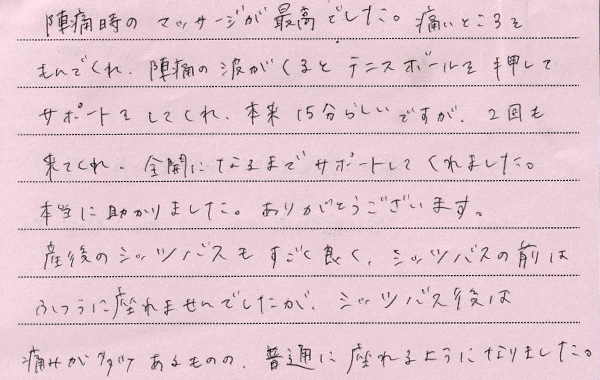 陣痛時の マッサージが最高でした。痛いところを
もんでくれ、陣痛の波がくると テニスボールを押して
サポートをしてくれ、本来15分らしいですが、2回も
来てくれ、全開になるまでサポートしてくれました。
本当に助かりました。ありがとうございます。
産後のシッツバスもすごく良く、シッツバスの前は
ふつうに座れませんでしたが、シッツバス後は
痛みが多少あるものの、普通に座れるようになりました。